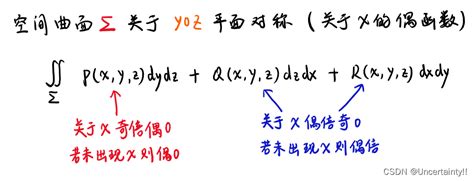 空间曲面 Σ 关于 yoz 平面对称 (关于 x 的偶函数)
∬_Σ P(x,y,z)dydz + Q(x,y,z)dzdx + R(x,y,z)dxdy
关于 x 奇倍偶0
若未出现 x 则偶0
关于 x 偶倍奇0
若未出现 x 则偶倍
CSDN @Uncertainty!!